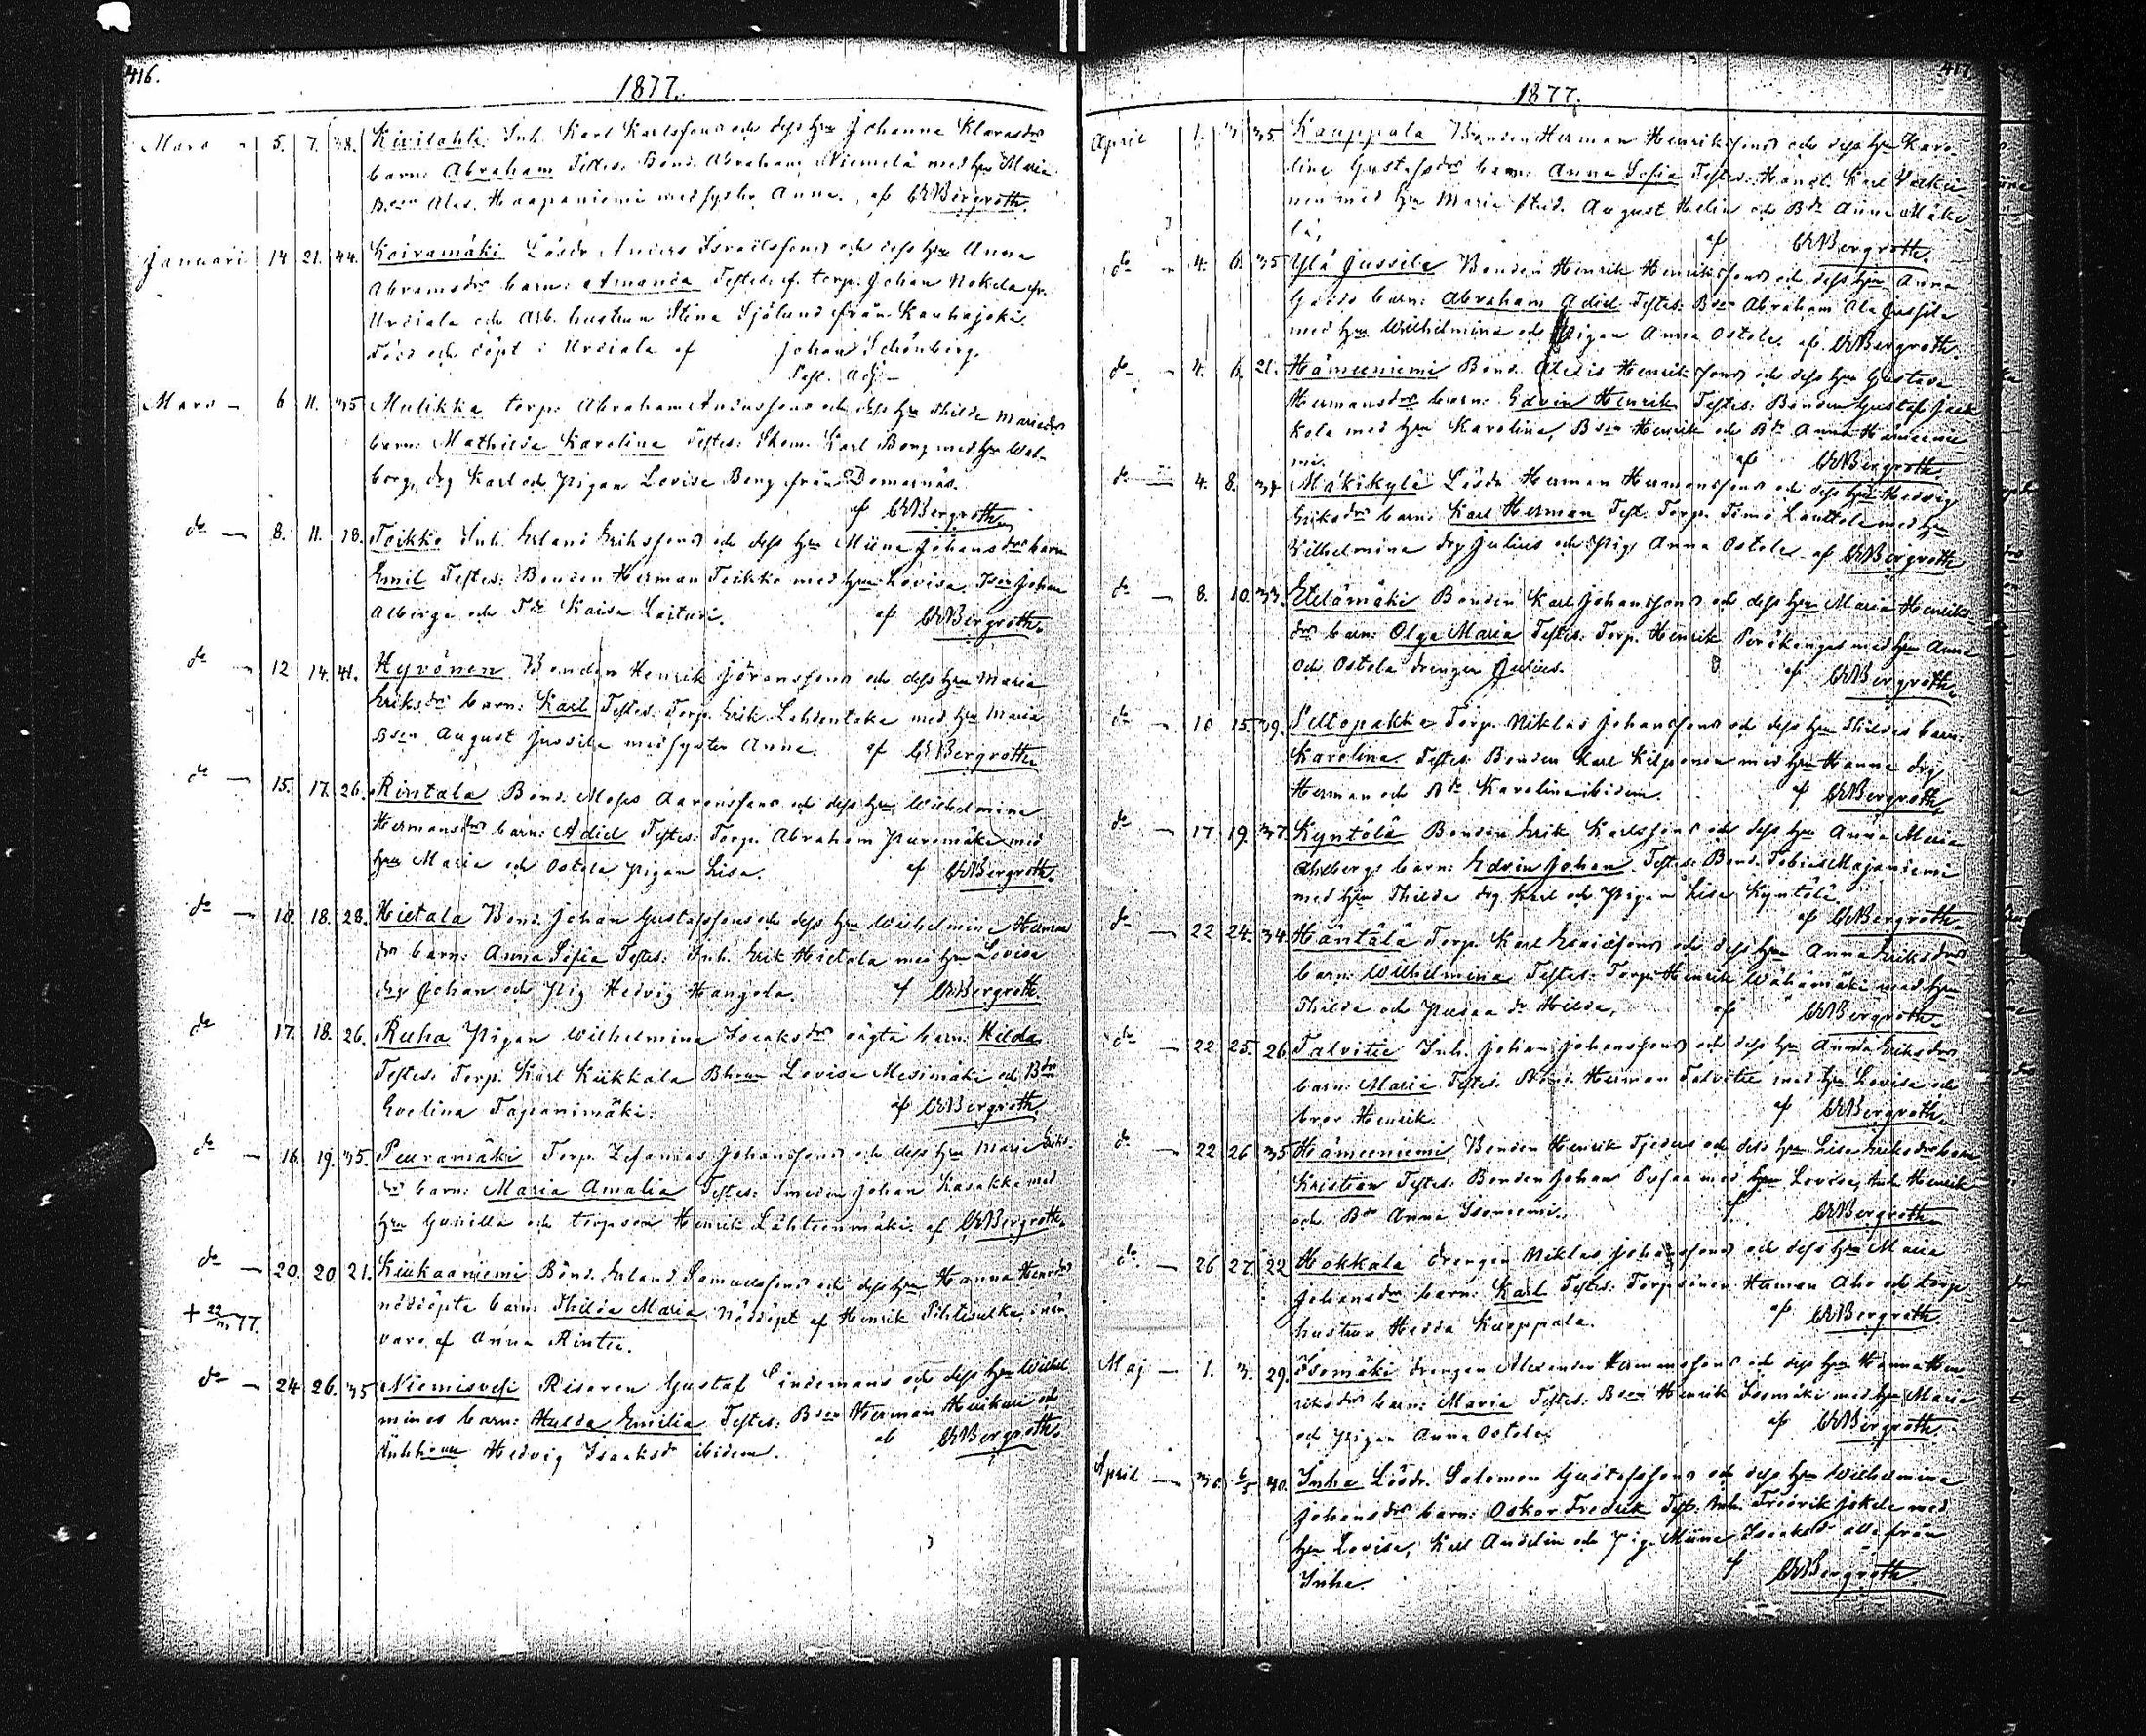 416.
1877.
Mars - 5. 7. 38. Kivilahti Inh. Karl Karlsson och dess hu Johanna Klarasdr
barn: Abraham Testes: Bond. Abraham Niemelä med hu Maria
Bson Alex. Haapaniemi med syster Anna. af CEBergroth.
Januari 14 21. 44. Koiramäki Lösdr Anders Israelsson och dess hu Anna
Abramsdr barn: Amanda Testes: f. torp. Johan Nokela fr.
Urdiala och Arb. hustrun Stina Sjölund från Kauhajoki.
Född och döpt i Urdiala af Johan Schönberg.
Past. Adj.
Mars - 6 11. 35 Mulikka torp. Abraham Andersson och dess hu Thilda Mariasdr
barn: Mathilda Karolina Testes: Skom. Karl Berg med hu Wal-
borg, drg Karl och pigan Lovisa Berg från Domarnäs.
af CEBergroth
do - 8. 11. 28. Toikko Inh. Erland Eriksson och dess hu Miina Johansdr barn
Emil Testes: Bonden Herman Toikko med hu Lovisa. Json Johan
Alberga och Tdr Kaisa Laituri. af CEBergroth.
do - 12 14. 41. Hyvönen Bonden Henrik Jöransson och dess hu Maria
Eriksdr barn: Karl Testes: Torp. Erik Lehdentaka med hu Maria
Bson August Jussila med syster Anna. af CEBergroth
do - 15. 17. 26. Rintala Bond. Moses Aaronsson och dess hu Wilhelmina
Hermansdr barn: Adiel Testes: Torp. Abraham Puromäki med
hu Maria och Ostola pigan Lisa. af CEBergroth.
do - 18. 18. 28. Hietala Bond. Johan Gustafsson och dess hu Wilhelmina Herman
dr barn: Anna Sofia Testes: Inh. Erik Hietala med hu Lovisa
drg Johan och Pig Hedvig Hangola. af CEBergroth.
do 17. 18. 26. Ruha Pigan Wilhelmina Isaaksdr oägta barn: Hilda
Testes: Torp. Karl Kiikkala Bhu Lovisa Mesimäki och Bdr
Evelina Tapanimäki. af CEBergroth.
do - 16. 19. 35. Puuramäki Torp. Zefanias Johansson och dess hu Maria Eriks
dr barn: Maria Amalia Testes: Smeden Johan Kasakka med
hu Gunilla och torpson Henrik Lähteenmäki. af CEBergroth.
do - 20. 20. 21. Kiukaaniemi Bond. Erland Samuelsson och dess hu Hanna Henrdr
nöddöpta barn: Thilda Maria Nöddöpt af Henrik Pihlisulka, i när
+ 22/III 77. varo af Anna Rintee.
do - 24. 26. 35 Niemisvesi Risaren Gustaf Lindemans och dess hu Wilhel
minas barn: Hulda Emilia Testes: Bson Herman Heikuri och
Änkhu Hedvig Isaaksdr ibidem. af CEBergroth.
417.
1877.
April 1. 3. 35 Kauppala Bonden Herman Henriksson och dess hu Karo-
lina Gustafsdr barn: Anna Sofia Testes: Handl. Karl Pelki
nen med hu Maria Stud. August Helin och Bdr Anna Mäke-
lä, af CEBergroth.
do - 4. 6. 35 Ylä Jussila Bonden Henrik Henriksson och dess hu Anna
barn: Abraham Adiel Testes: Bson Abraham Ala Jussila
med hu Wilhelmina och Pigan Anna Ostola. af CEBergroth.
do - 4. 6. 21. Hämeeniemi Bond. Alexis Henriksson och dess hu Gustava
Hermansdr barn: Edvin Henrik Testes: Bonden Gustaf Jaak
kola med hu Karolina, Bson Henrik och Bdr Anna Hämeenie
mi. af CEBergroth.
do - 4. 8. 34. Mäkikylä Lösdr. Herman Hermansson och dess hu Hedvig
Eriksdr barn: Karl Herman Test. Torp. Timo Lauttola med hu
Wilhelmina drg Julius och Pig. Anna Ostola. af CEBergroth
do - 8. 10. 33. Etelämäki Bonden Karl Johansson och dess hu Maria Henriks-
dr barn: Olga Maria Testes: Torp. Henrik Peräkangas med hu Anna
och Ostola drengen Julius. af CEBergroth.
do - 10 15. 39. Peltopakka Torp. Niklas Johansson och dess hu Thildas barn:
Karolina. Testes: Bonden Karl Kilponen med hu Hanna drg
Herman och Bdr Karolina ibidem. af CEBergroth.
do - 17 19. 37. Kyntölä Bonden Erik Karlsson och dess hu Anna Maria
Ahlbergs barn: Edvin Johan. Testes: Bond. Tobias Majaniemi
med hu Thilda drg Karl och Pigan Lisa Kyntölä
af CEBergroth.
do - 22 24. 34. Häntälä Torp. Karl Esaiasson och dess hu Anna Eriksdr
barn: Wilhelmina Testes: Torp. Henrik Wähämäki med hu
Thilda och Pusaa dr Hilda, af CEBergroth.
do - 22 25. 26 Talvitie Inh. Johan Johansson och dess hu Anna Eriksdr
barn: Maria Testes: Bond. Herman Talvitie med hu Lovisa och
bror Henrik. af CEBergroth.
do - 22 26 35 Hämeeniemi Bonden Henrik Tjeders och dess hu Lisa Eriksdr barn
Kristian Testes: Bonden Johan Pusaa med hu Lovisa, Inh. Henrik
och Bdr Anna Isoniemi. af CEBergroth
do - 26 27. 22 Hokkala drengen Niklas Johansson och dess hu Maria
Johansdr barn: Karl Testes: Torpsonen Herman Aho och torp-
hustrun Hedda Kauppala. af CEBergroth.
Maj - 1. 3. 29. Isomäki drengen Alexander Hermansson och dess hu Hanna Hen
riksdr barn: Maria Testes: Bson Henrik Isomäki med hu Maria
och Pigan Anna Ostola. af CEBergroth.
April - 30. 6/5 40. Inha Lösdr. Salomon Gustafsson och dess hu Wilhelmina
Johansdr barn: Oskar Fredrik Test. Inh. Fredrik Jokela med
hu Lovisa, Karl Andelin och Pig. Miina Isaaksdr alla från
Inha. af CEBergroth.